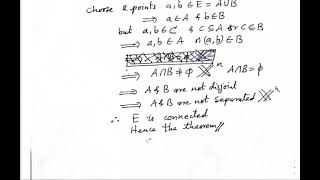 choose 2 points a, b ∈ E = A∪B
⟹ a∈A & b∈B
but a, b ∈ C & C⊆A or C⊆B
⟹ a, b ∈ A ∩ (a, b) ∈ B
⟹ A∩B ≠ ϕ A∩B = ϕ
⟹ A & B are not disjoint
⟹ A & B are not separated
∴ E is connected
Hence the theorem//